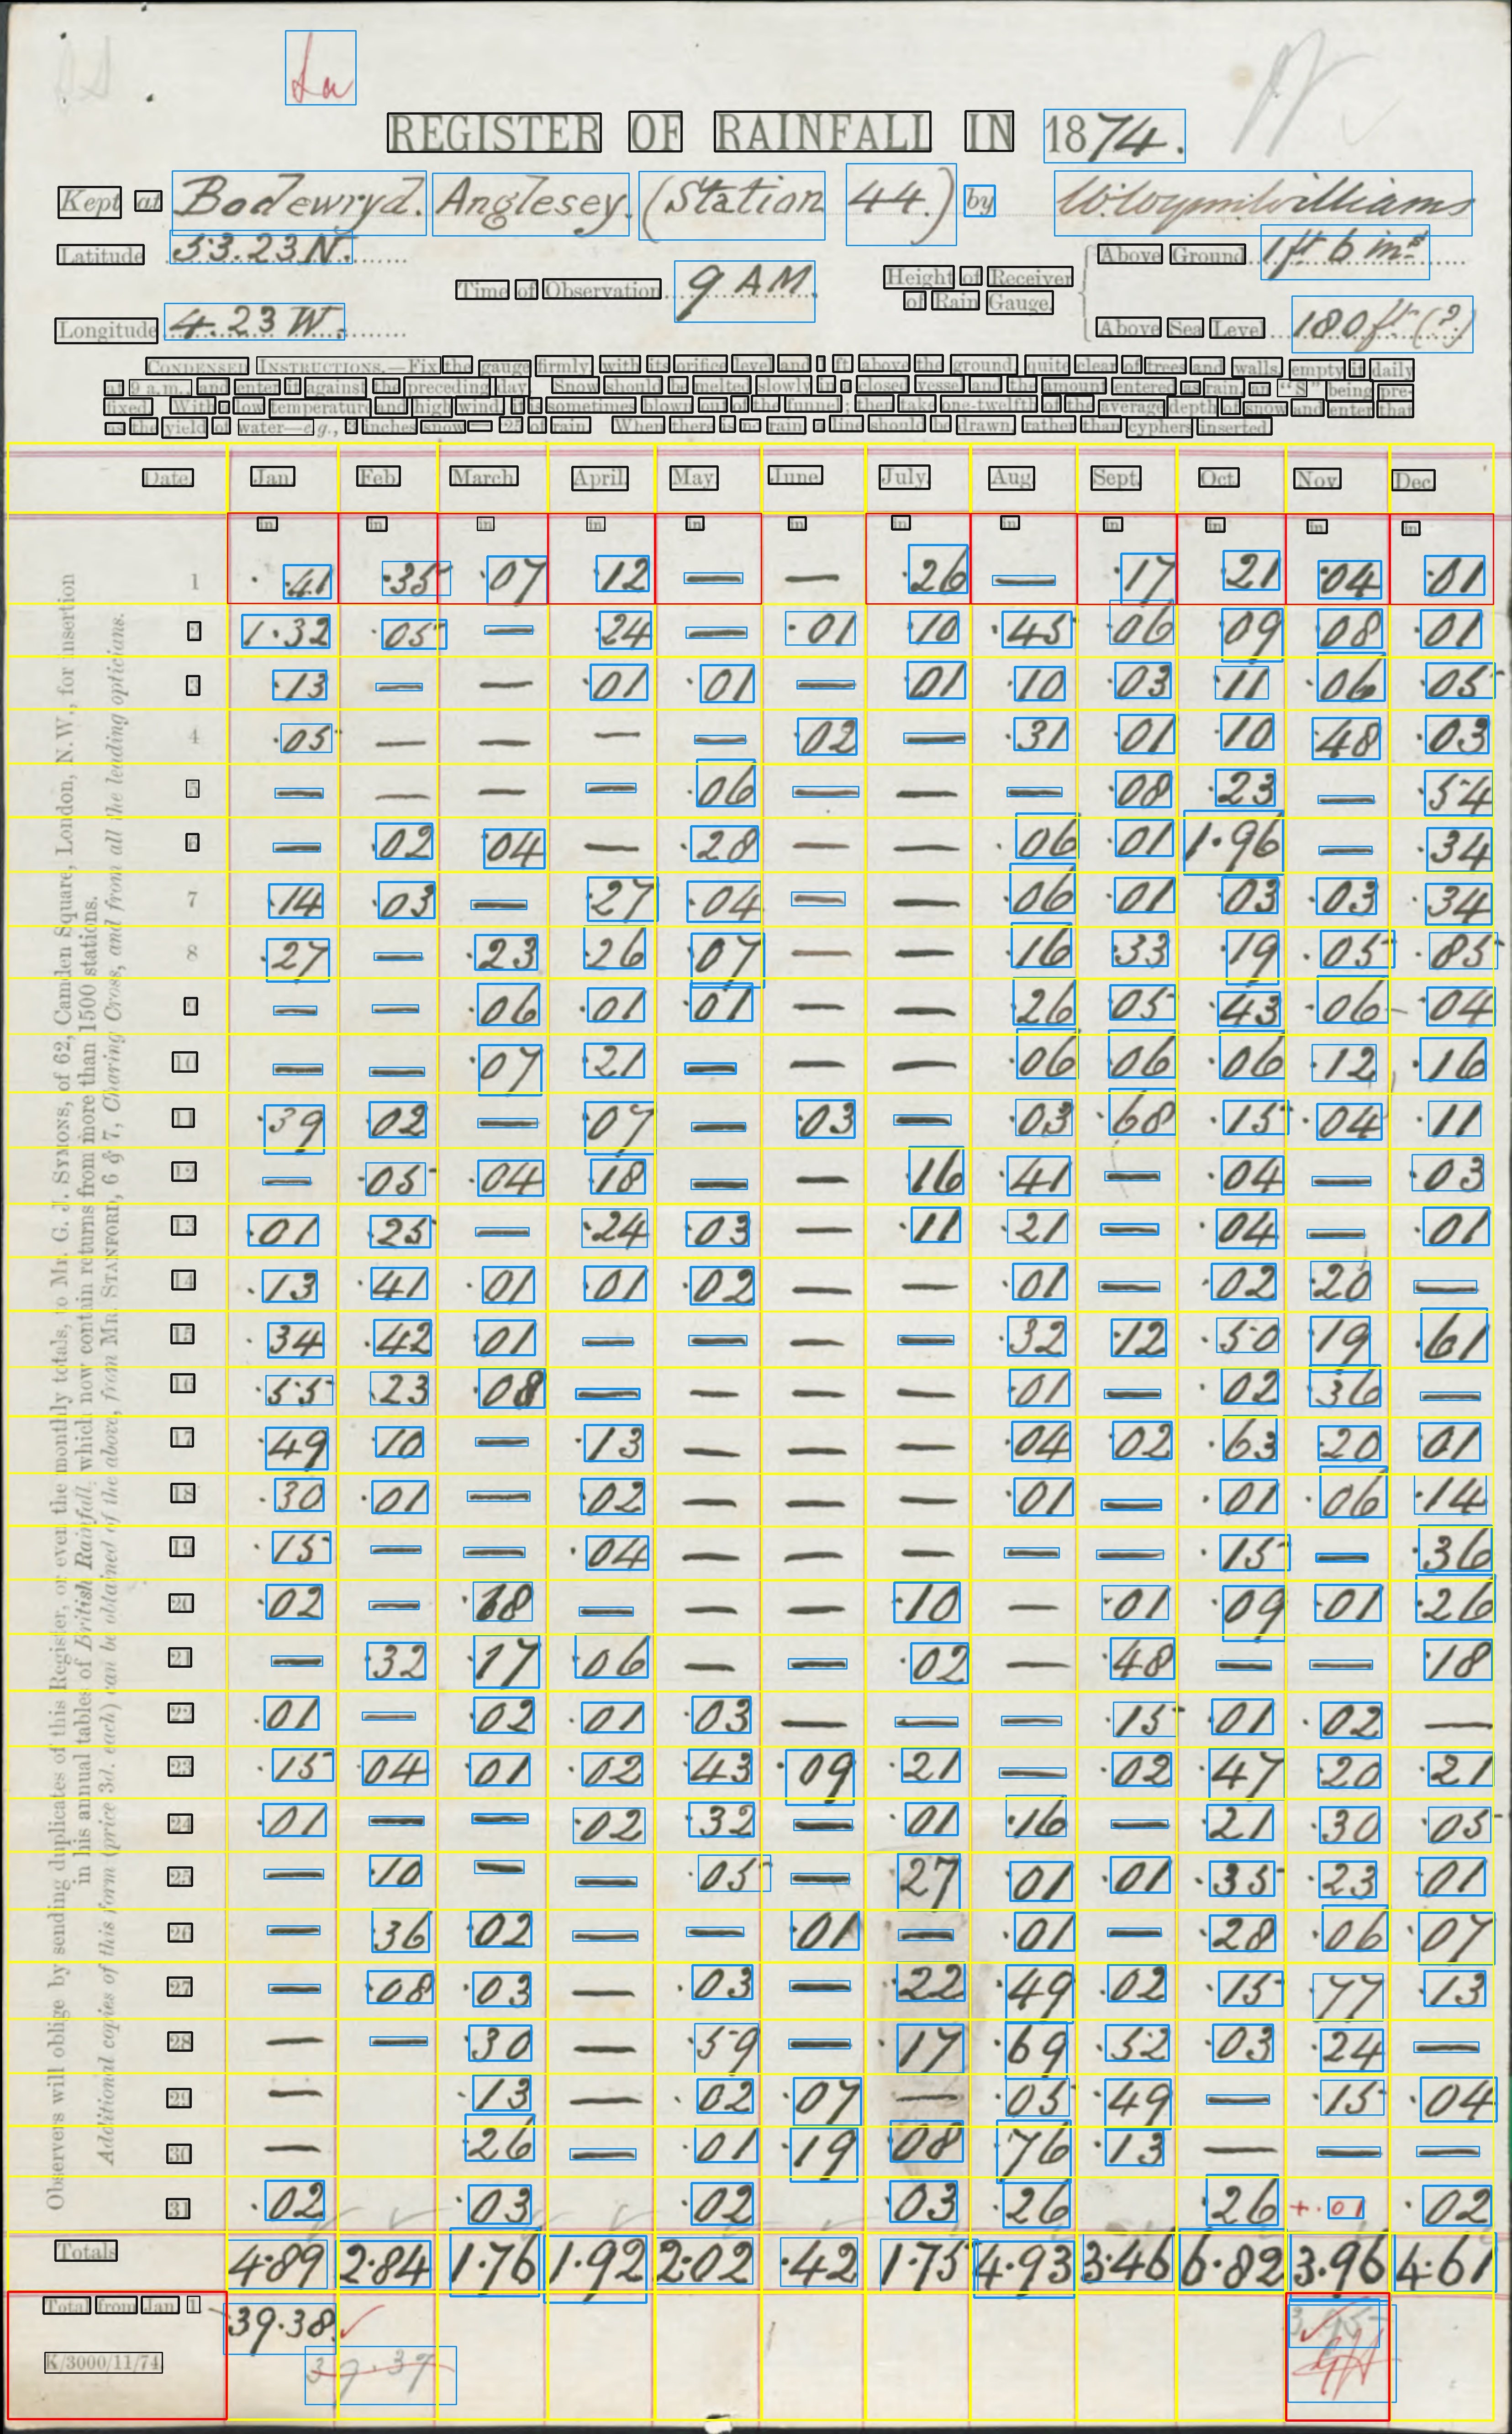 La
REGISTER OF RAINFALL IN 1874.
Kept at Bodewryd. Anglesey. (Station 44.) by
Latitude 53.23 N. Above Ground 1 ft 6 ins
Time of Observation 9 AM. Height of Receiver of Rain Gauge.
Longitude 4.23 W. Above Sea Level 180 ft (?)
CONDENSED INSTRUCTIONS.—Fix the gauge firmly, with its orifice level and 1 ft. above the ground, quite clear of trees and walls, empty it daily
at 9 a.m., and enter it against the preceding day. Snow should be melted slowly in a closed vessel and the amount entered as rain, an "S" being pre-
fixed. With a low temperature and high wind, it is sometimes blown out of the funnel; then take one-twelfth of the average depth of snow and enter that
as the yield of water—e.g., 3 inches snow — ·25 of rain. When there is no rain, a line should be drawn, rather than cyphers inserted.
Observers will oblige by sending duplicates of this Register, or even the monthly totals, to Mr. G. J. SYMONS, of 62, Camden Square, London, N.W., for insertion
in his annual tables of British Rainfall, which now contain returns from more than 1500 stations.
Additional copies of this form (price 3d. each) can be obtained of the above, from MR. STANFORD, 6 & 7, Charing Cross, and from all the leading opticians.
Date. Jan. Feb. March. April. May. June. July. Aug. Sept. Oct. Nov. Dec.
in. in. in. in. in. in. in. in. in. in. in. in.
1 ·41 ·35 ·07 ·12 — — ·26 — ·17 ·21 ·04 ·01
2 1·32 ·05 — ·24 — ·01 ·10 ·45 ·06 ·09 ·08 ·01
3 ·13 — — ·01 ·01 — ·01 ·10 ·03 ·11 ·06 ·05
4 ·05 — — — — ·02 — ·31 ·01 ·10 ·48 ·03
5 — — — — ·06 — — — ·08 ·23 — ·54
6 — ·02 ·04 — ·28 — — ·06 ·01 1·96 — ·34
7 ·14 ·03 — ·27 ·04 — — ·06 ·01 ·03 ·03 ·34
8 ·27 — ·23 ·26 ·07 — — ·16 ·33 ·19 ·05 ·85
9 — — ·06 ·01 ·01 — — ·26 ·05 ·43 ·06 ·04
10 — — ·07 ·21 — — — ·06 ·06 ·06 ·12 ·16
11 ·39 ·02 — ·07 — ·03 — ·03 ·68 ·15 ·04 ·11
12 — ·05 ·04 ·18 — — ·16 ·41 — ·04 — ·03
13 ·01 ·25 — ·24 ·03 — ·11 ·21 — ·04 — ·01
14 ·13 ·41 ·01 ·01 ·02 — — ·01 — ·02 ·20 —
15 ·34 ·42 ·01 — — — — ·32 ·12 ·50 ·19 ·61
16 ·55 ·23 ·08 — — — — ·01 — ·02 ·36 —
17 ·49 ·10 — ·13 — — — ·04 ·02 ·63 ·20 ·01
18 ·30 ·01 — ·02 — — — ·01 — ·01 ·06 ·14
19 ·15 — — ·04 — — — — — ·15 — ·36
20 ·02 — ·18 — — — ·10 — ·01 ·09 ·01 ·26
21 — ·32 ·17 ·06 — — ·02 — ·48 — — ·18
22 ·01 — ·02 ·01 ·03 — — — ·15 ·01 ·02 —
23 ·15 ·04 ·01 ·02 ·43 ·09 ·21 — ·02 ·47 ·20 ·21
24 ·01 — — ·02 ·32 — ·01 ·16 — ·21 ·30 ·05
25 — ·10 — — ·05 — ·27 ·01 ·01 ·35 ·23 ·01
26 — ·36 ·02 — — ·01 — ·01 — ·28 ·06 ·07
27 — ·08 ·03 — ·03 — ·22 ·49 ·02 ·15 ·77 ·13
28 — — ·30 — ·59 — ·17 ·69 ·52 ·03 ·24 —
29 — ·13 — ·02 ·07 — ·05 ·49 — ·15 ·04
30 — ·26 — ·01 ·19 ·08 ·76 ·13 — — —
31 ·02 ·03 ·02 ·03 ·26 ·26 +·01 ·02
Totals 4·89 2·84 1·76 1·92 2·02 ·42 1·75 4·93 3·46 6·82 3·96 4·61
Total from Jan. 1 39·38 3.95
39·37
K/3000/11/74.